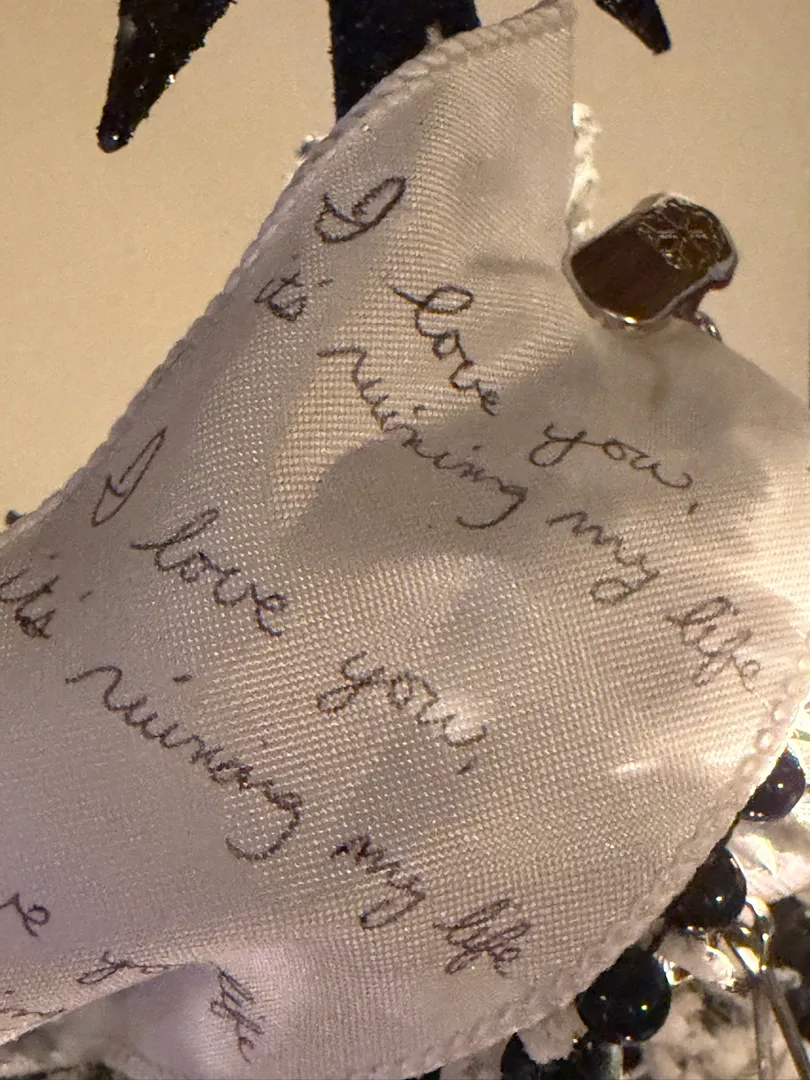 I love you,
it's ruining my life
I love you,
it's ruining my life
life